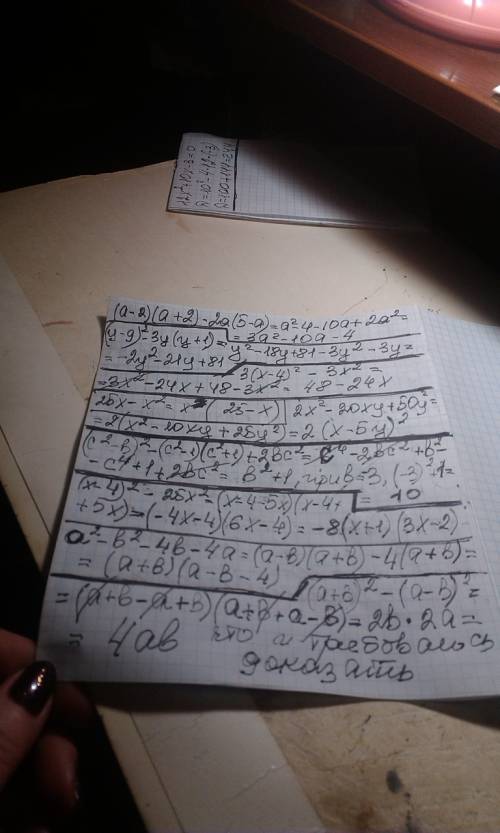 12x²+10x-3=0
(a-2)(a+2)-2a(5-a)=a²-4-10a+2a²=
=3a²-10a-4
(y-9)²-3y(y+1)=y²-18y+81-3y²-3y=
=-2y²-21y+81
3(x-4)²-3x²=
=3x²-24x+48-3x²=48-24x
25x-x²=x(25-x) 2x²-20xy+50y²=
=2(x²-10xy+25y²)=2(x-5y)²
(c²-в)²-(c²-1)(c²+1)+2вc²=c⁴-2вc²+в²-
-c⁴+1+2вc²=в²+1, при в=-3, (-3)²+1=
=10
(x-4)²-25x²=(x-4-5x)(x-4+
+5x)=(-4x-4)(6x-4)=-8(x+1)(3x-2)
a²-в²-4в-4a=(a-в)(a+в)-4(a+в)=
=(a+в)(a-в-4)
(a+в)²-(a-в)²=
=(a+в-a+в)(a+в+a-в)=2в·2a=
=4aв что и требовалось
доказать